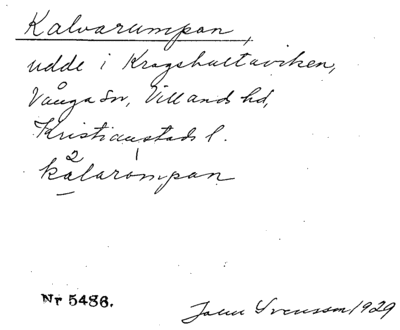 Kalvarumpan,
udde i Kragshultaviken,
Vånga sn, Villands hd,
Kristianstads l.
kalarompan
Nr 5486.
John Svensson 1929